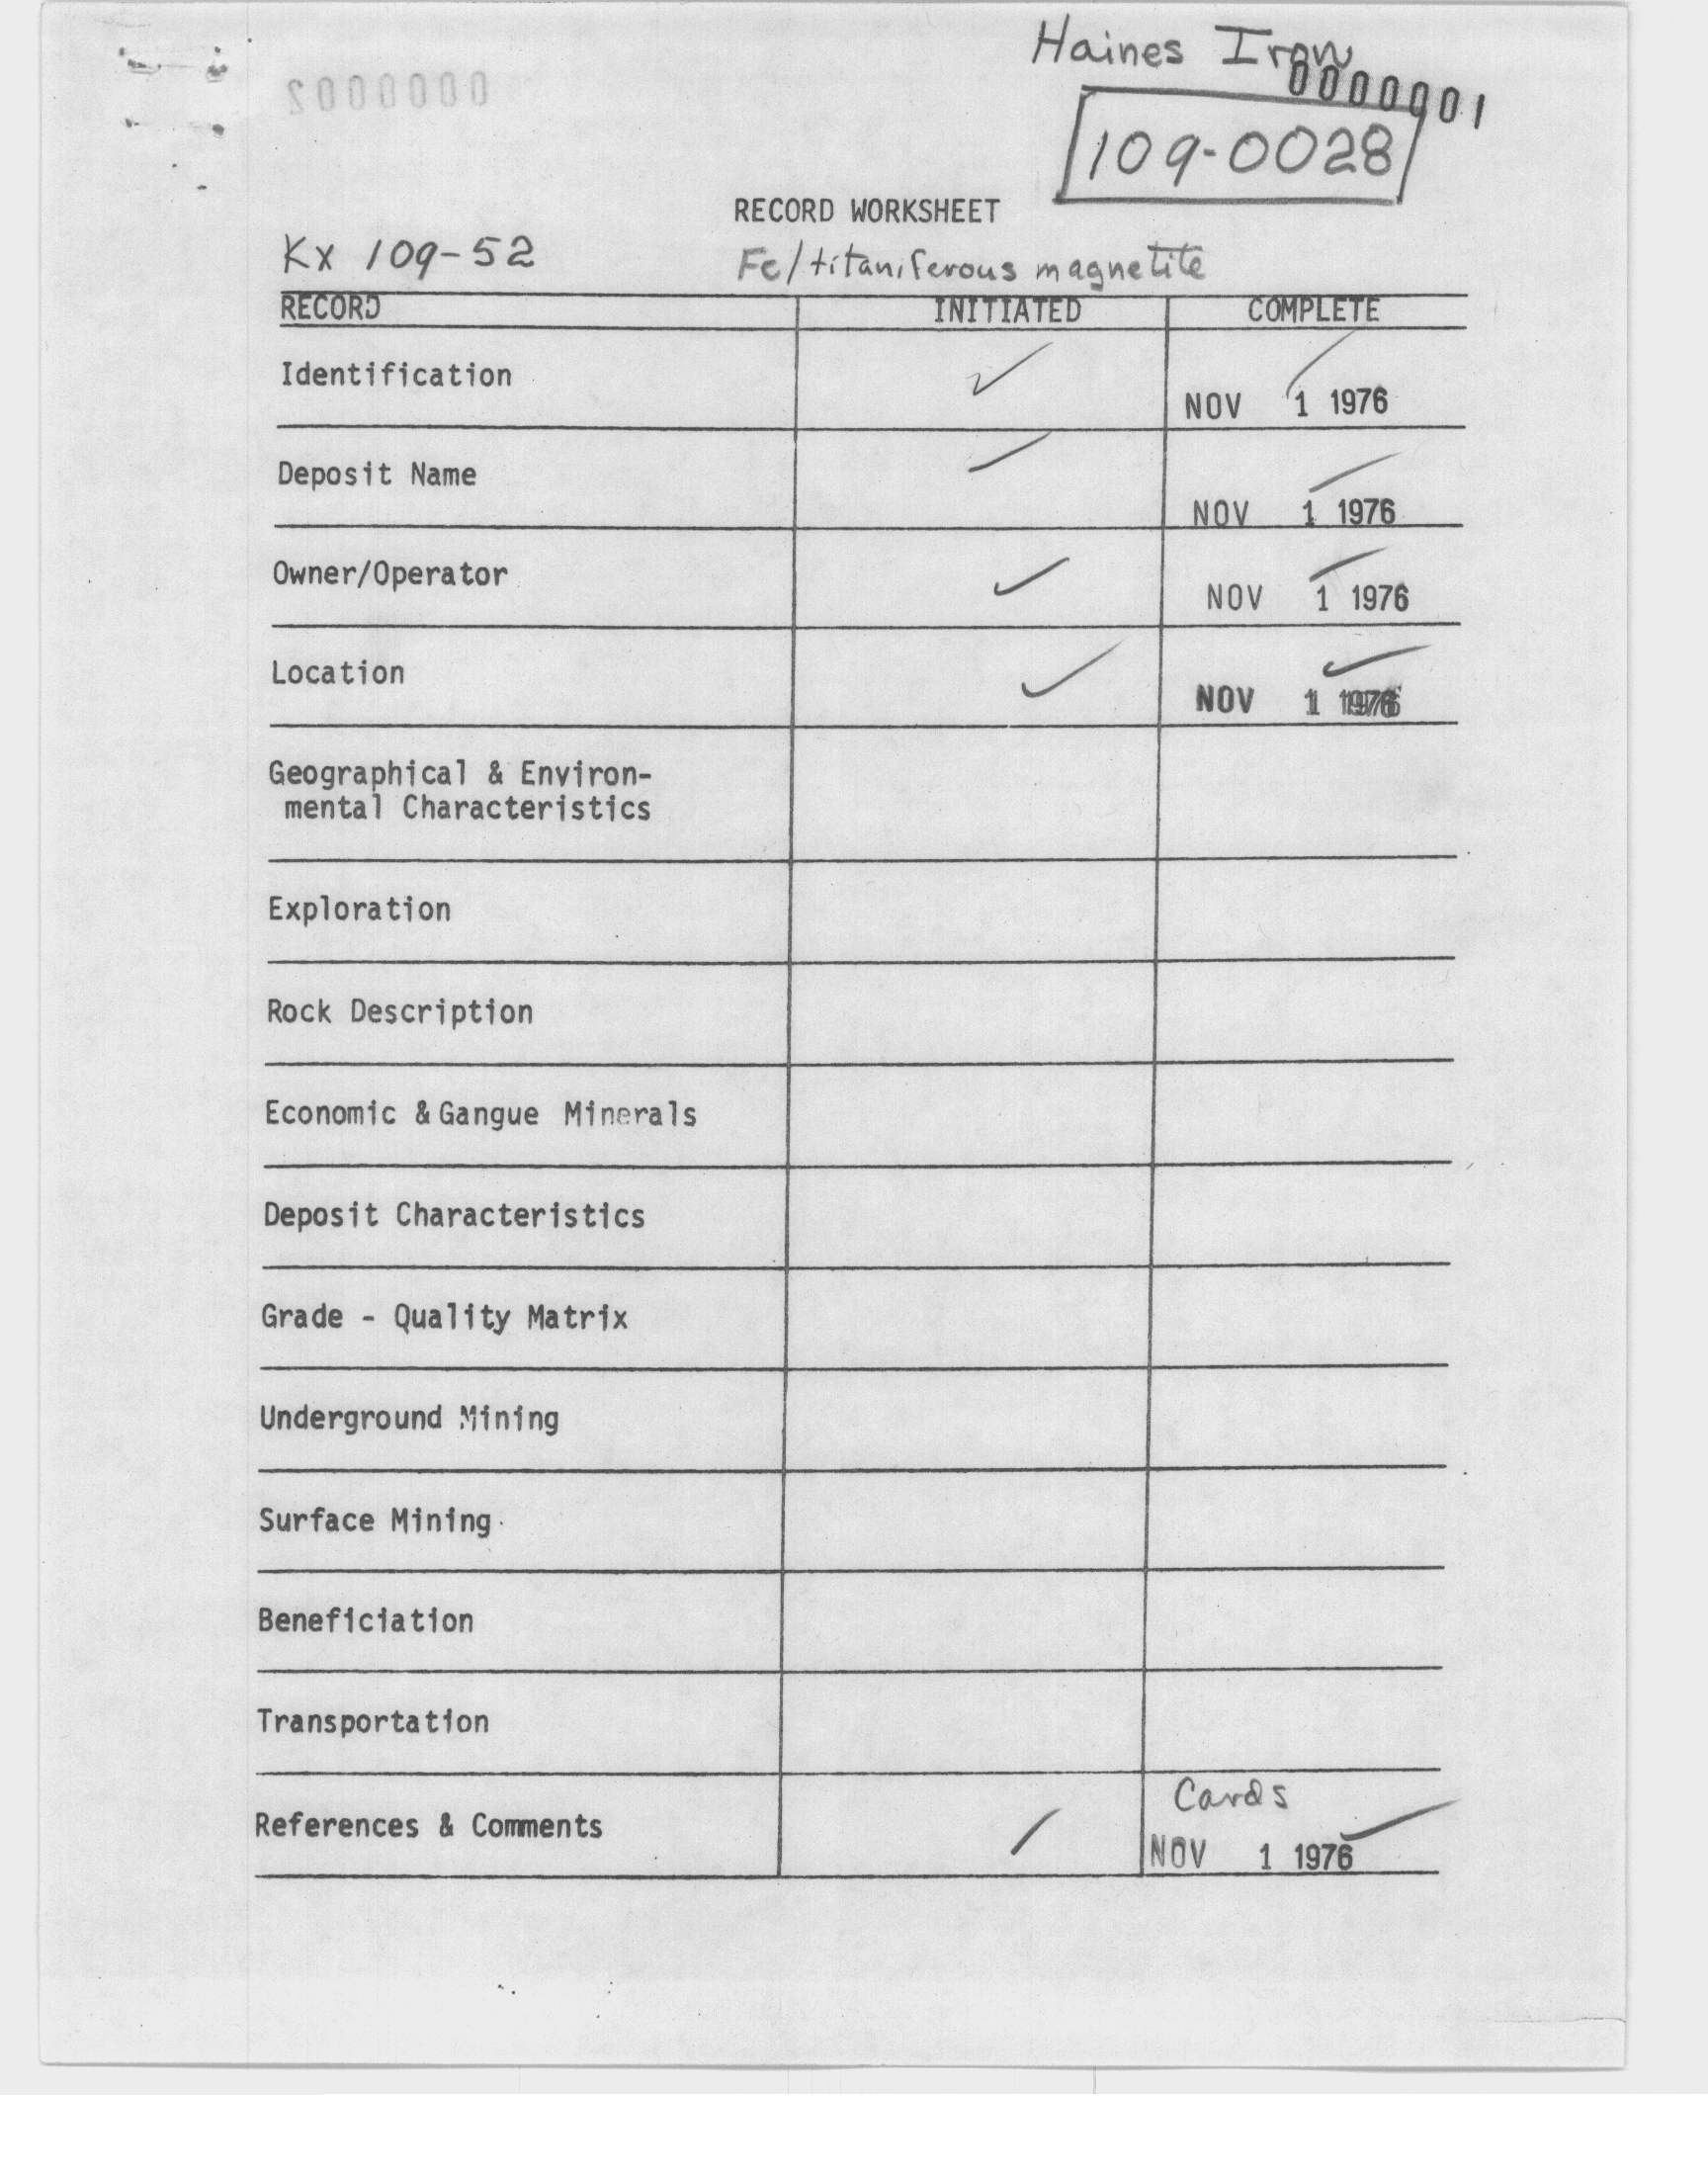 Haines Iron
0000001
0000002
109-0028
RECORD WORKSHEET
Kx 109-52
Fe/titaniferous magnetite
RECORD INITIATED COMPLETE
Identification ✓ NOV 1 1976
Deposit Name ✓ NOV 1 1976
Owner/Operator ✓ NOV 1 1976
Location ✓ NOV 1 1976
Geographical & Environ-
mental Characteristics
Exploration
Rock Description
Economic & Gangue Minerals
Deposit Characteristics
Grade - Quality Matrix
Underground Mining
Surface Mining
Beneficiation
Transportation
Cards
References & Comments ✓ NOV 1 1976